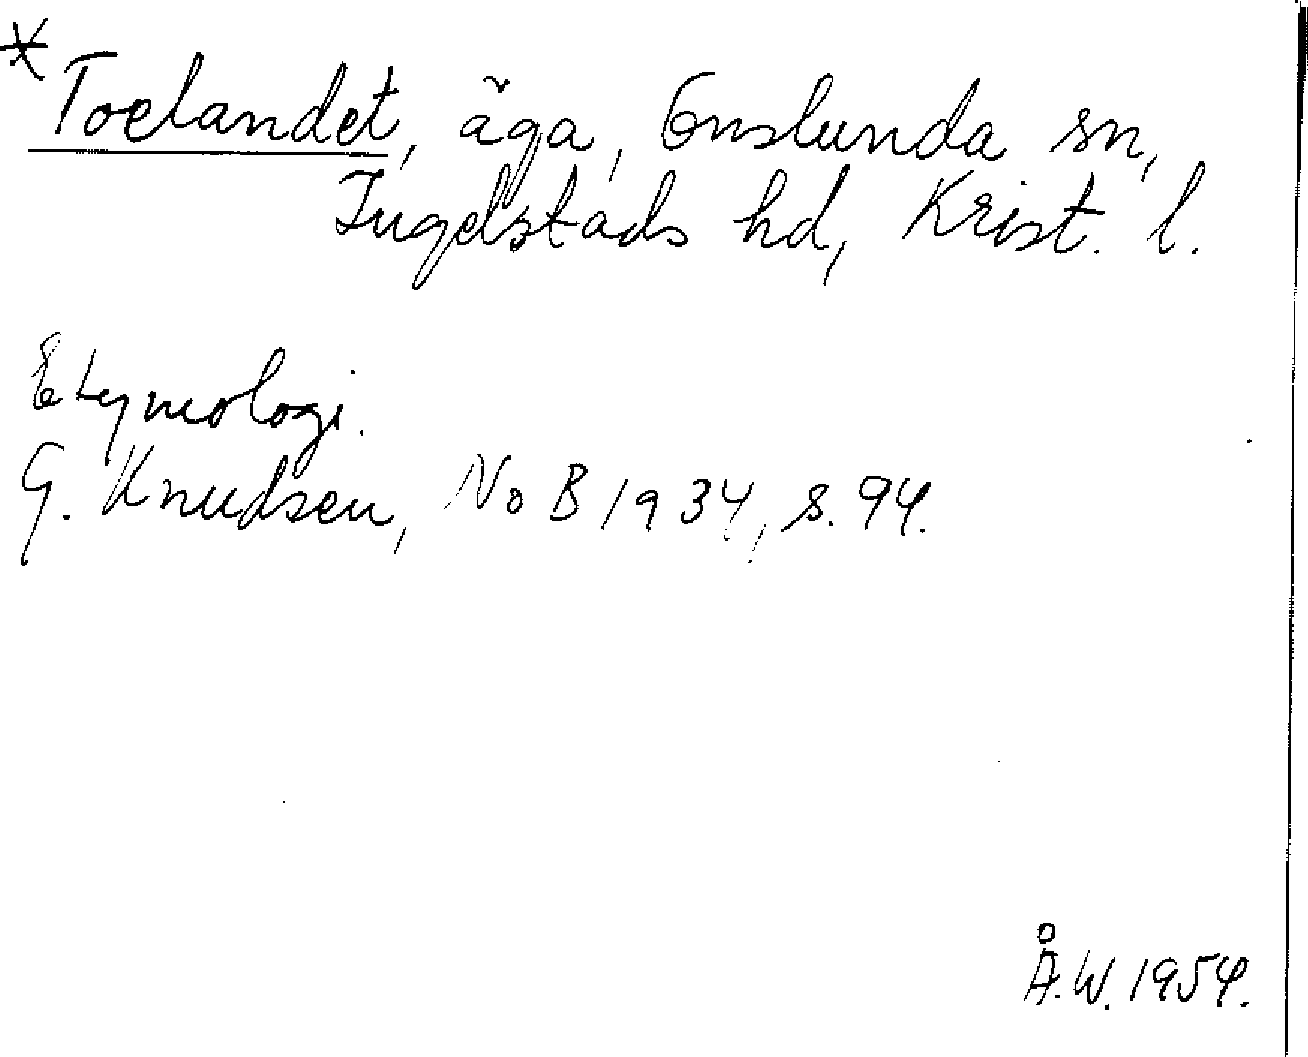 * Toelandet, äga, Enslunda sn,
Ingelstads hd, Krist. l.
Etymologi.
G. Knudsen, NoB 1934, s. 94.
Å.W. 1954.